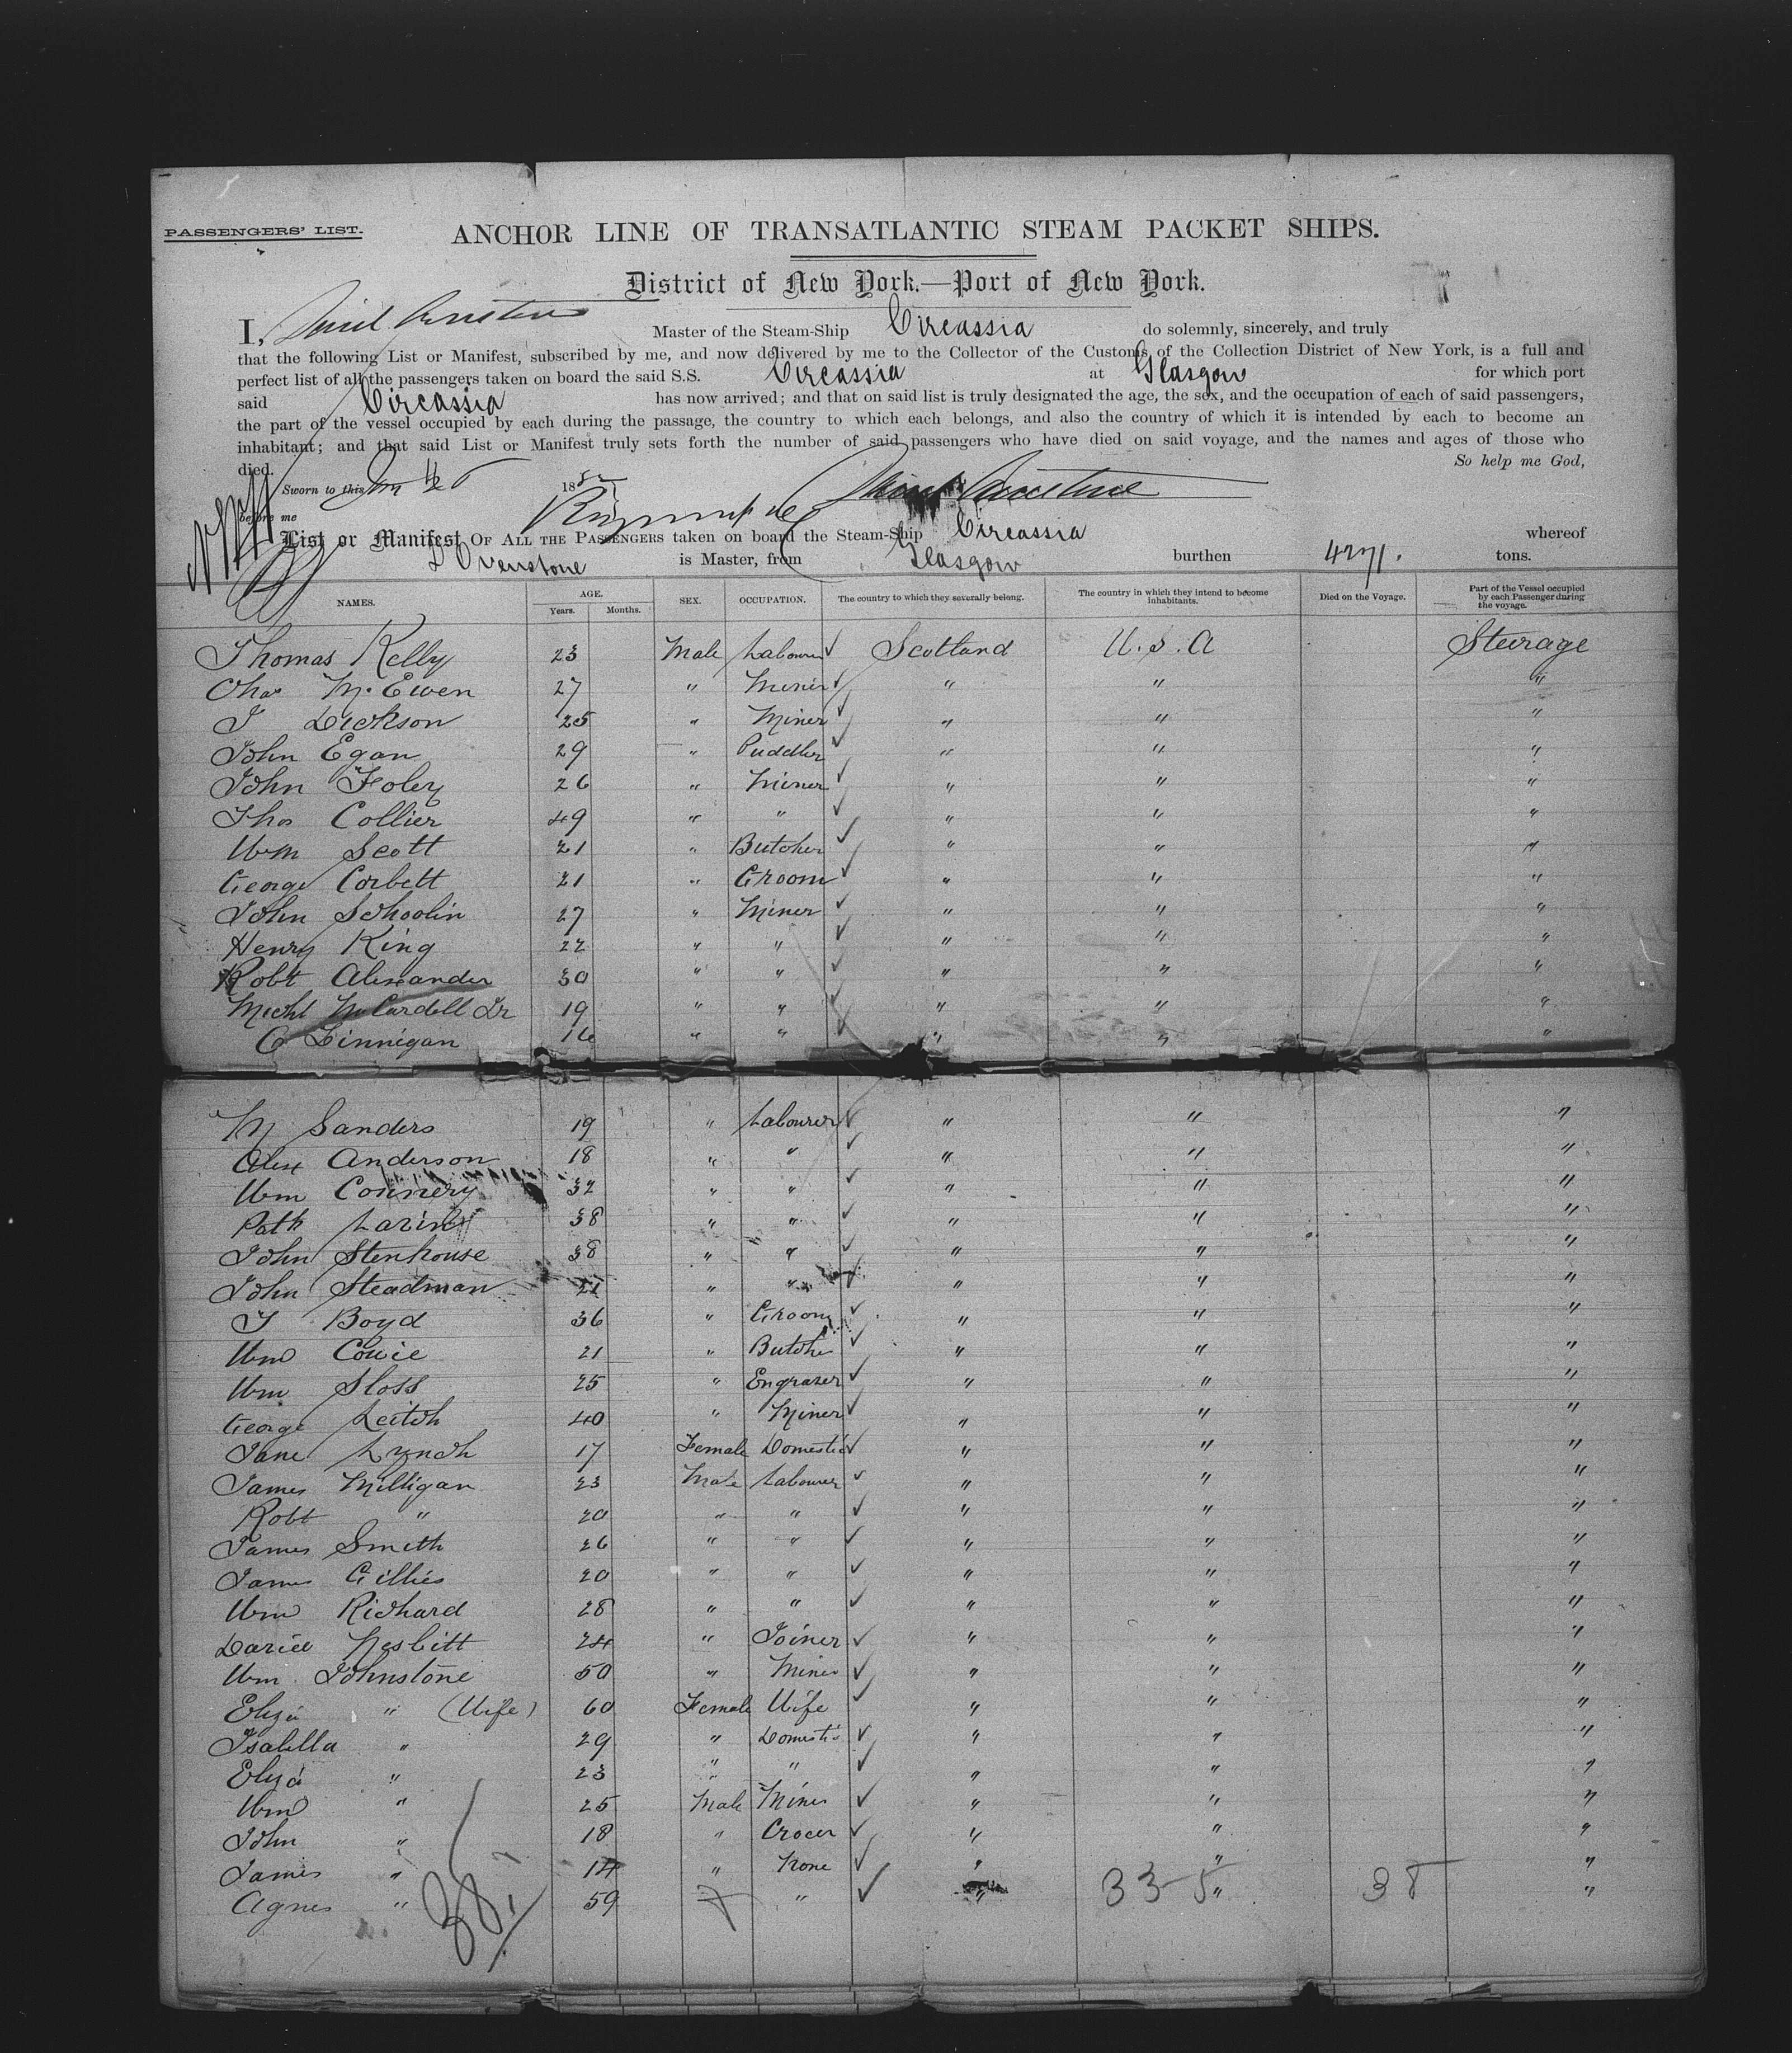 PASSENGERS' LIST.
ANCHOR LINE OF TRANSATLANTIC STEAM PACKET SHIPS.
District of New York.—Port of New York.
I, Master of the Steam-Ship Circassia do solemnly, sincerely, and truly
that the following List or Manifest, subscribed by me, and now delivered by me to the Collector of the Customs of the Collection District of New York, is a full and
perfect list of all the passengers taken on board the said S.S. Circassia at Glasgow for which port
said Circassia has now arrived; and that on said list is truly designated the age, the sex, and the occupation of each of said passengers,
the part of the vessel occupied by each during the passage, the country to which each belongs, and also the country of which it is intended by each to become an
inhabitant; and that said List or Manifest truly sets forth the number of said passengers who have died on said voyage, and the names and ages of those who
died. So help me God,
Sworn to this 188
before me
List or Manifest OF ALL THE PASSENGERS taken on board the Steam-Ship Circassia whereof
D Ovenstone is Master, from Glasgow burthen 4271. tons.
NAMES. AGE. Years. Months. SEX. OCCUPATION. The country to which they severally belong. The country in which they intend to become inhabitants. Died on the Voyage. Part of the Vessel occupied by each Passenger during the voyage.
Thomas Kelly 23 Male Labourer ✓ Scotland U.S.A Steerage
Chas McEwen 27 " Miner ✓ " " "
J Dickson 25 " Miner ✓ " " "
John Egan 29 " Puddler ✓ " " "
John Foley 26 " Miner ✓ " " "
Thos Collier 49 " " ✓ " " "
Wm Scott 21 " Butcher ✓ " " "
George Corbett 21 " Groom ✓ " " "
John Schoolin 27 " Miner ✓ " " "
Henry King 22 " " ✓ " " "
Robt Alexander 30 " " ✓ " " "
Michl McCardell Jr 19 " " ✓ " " "
C Finnigan 16 " " ✓ " " "
M Sanders 19 " Labourer ✓ " " "
Alex Anderson 18 " " ✓ " " "
Wm Connery 32 " " ✓ " " "
Patk 38 " " ✓ " " "
John Stenhouse 38 " " ✓ " " "
John Steadman 21 " " ✓ " " "
J Boyd 36 " Groom ✓ " " "
Wm Cowie 21 " Butcher ✓ " " "
Wm Sloss 25 " Engraver ✓ " " "
George Leitch 40 " Miner ✓ " " "
Jane Lynch 17 Female Domestic ✓ " " "
James Milligan 23 Male Labourer ✓ " " "
Robt " 20 " " ✓ " " "
James Smith 26 " " ✓ " " "
James Gillies 20 " " ✓ " " "
Wm Richard 28 " " ✓ " " "
Daniel Nesbitt 24 " Joiner ✓ " " "
Wm Johnstone 50 " Miner ✓ " " "
Eliza " (Wife) 60 Female Wife ✓ " " "
Isabella " 29 " Domestic ✓ " " "
Eliza " 23 " " ✓ " " "
Wm " 25 Male Miner ✓ " " "
John " 18 " Grocer ✓ " " "
James " 14 " None ✓ " " "
Agnes " 59 " ✓ " " "
38 33 5 38